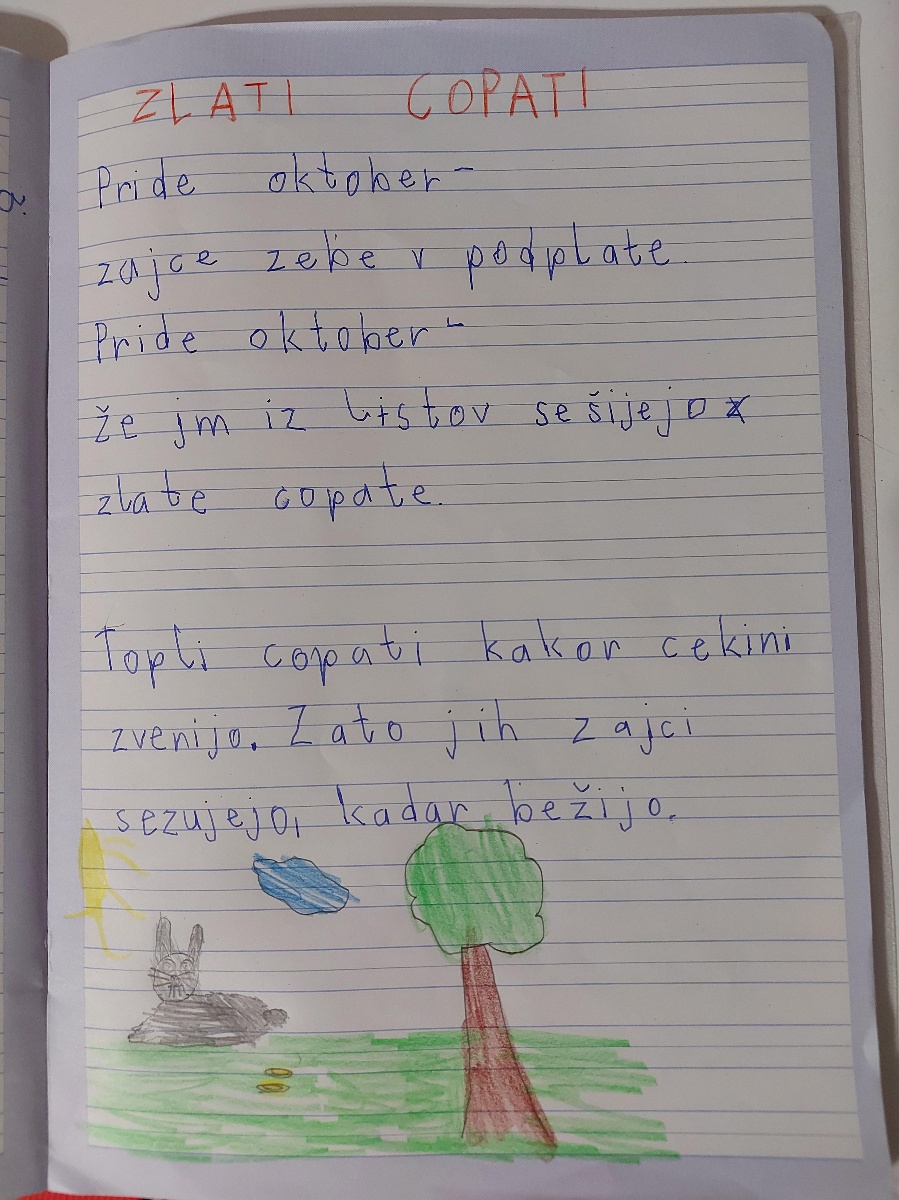 ZLATI COPATI
Pride oktober-
zajce zebe v podplate.
Pride oktober-
že jm iz listov sešijejo
zlate copate.
Topli copati kakor cekini
zvenijo. Zato jih zajci
sezujejo, kadar bežijo.